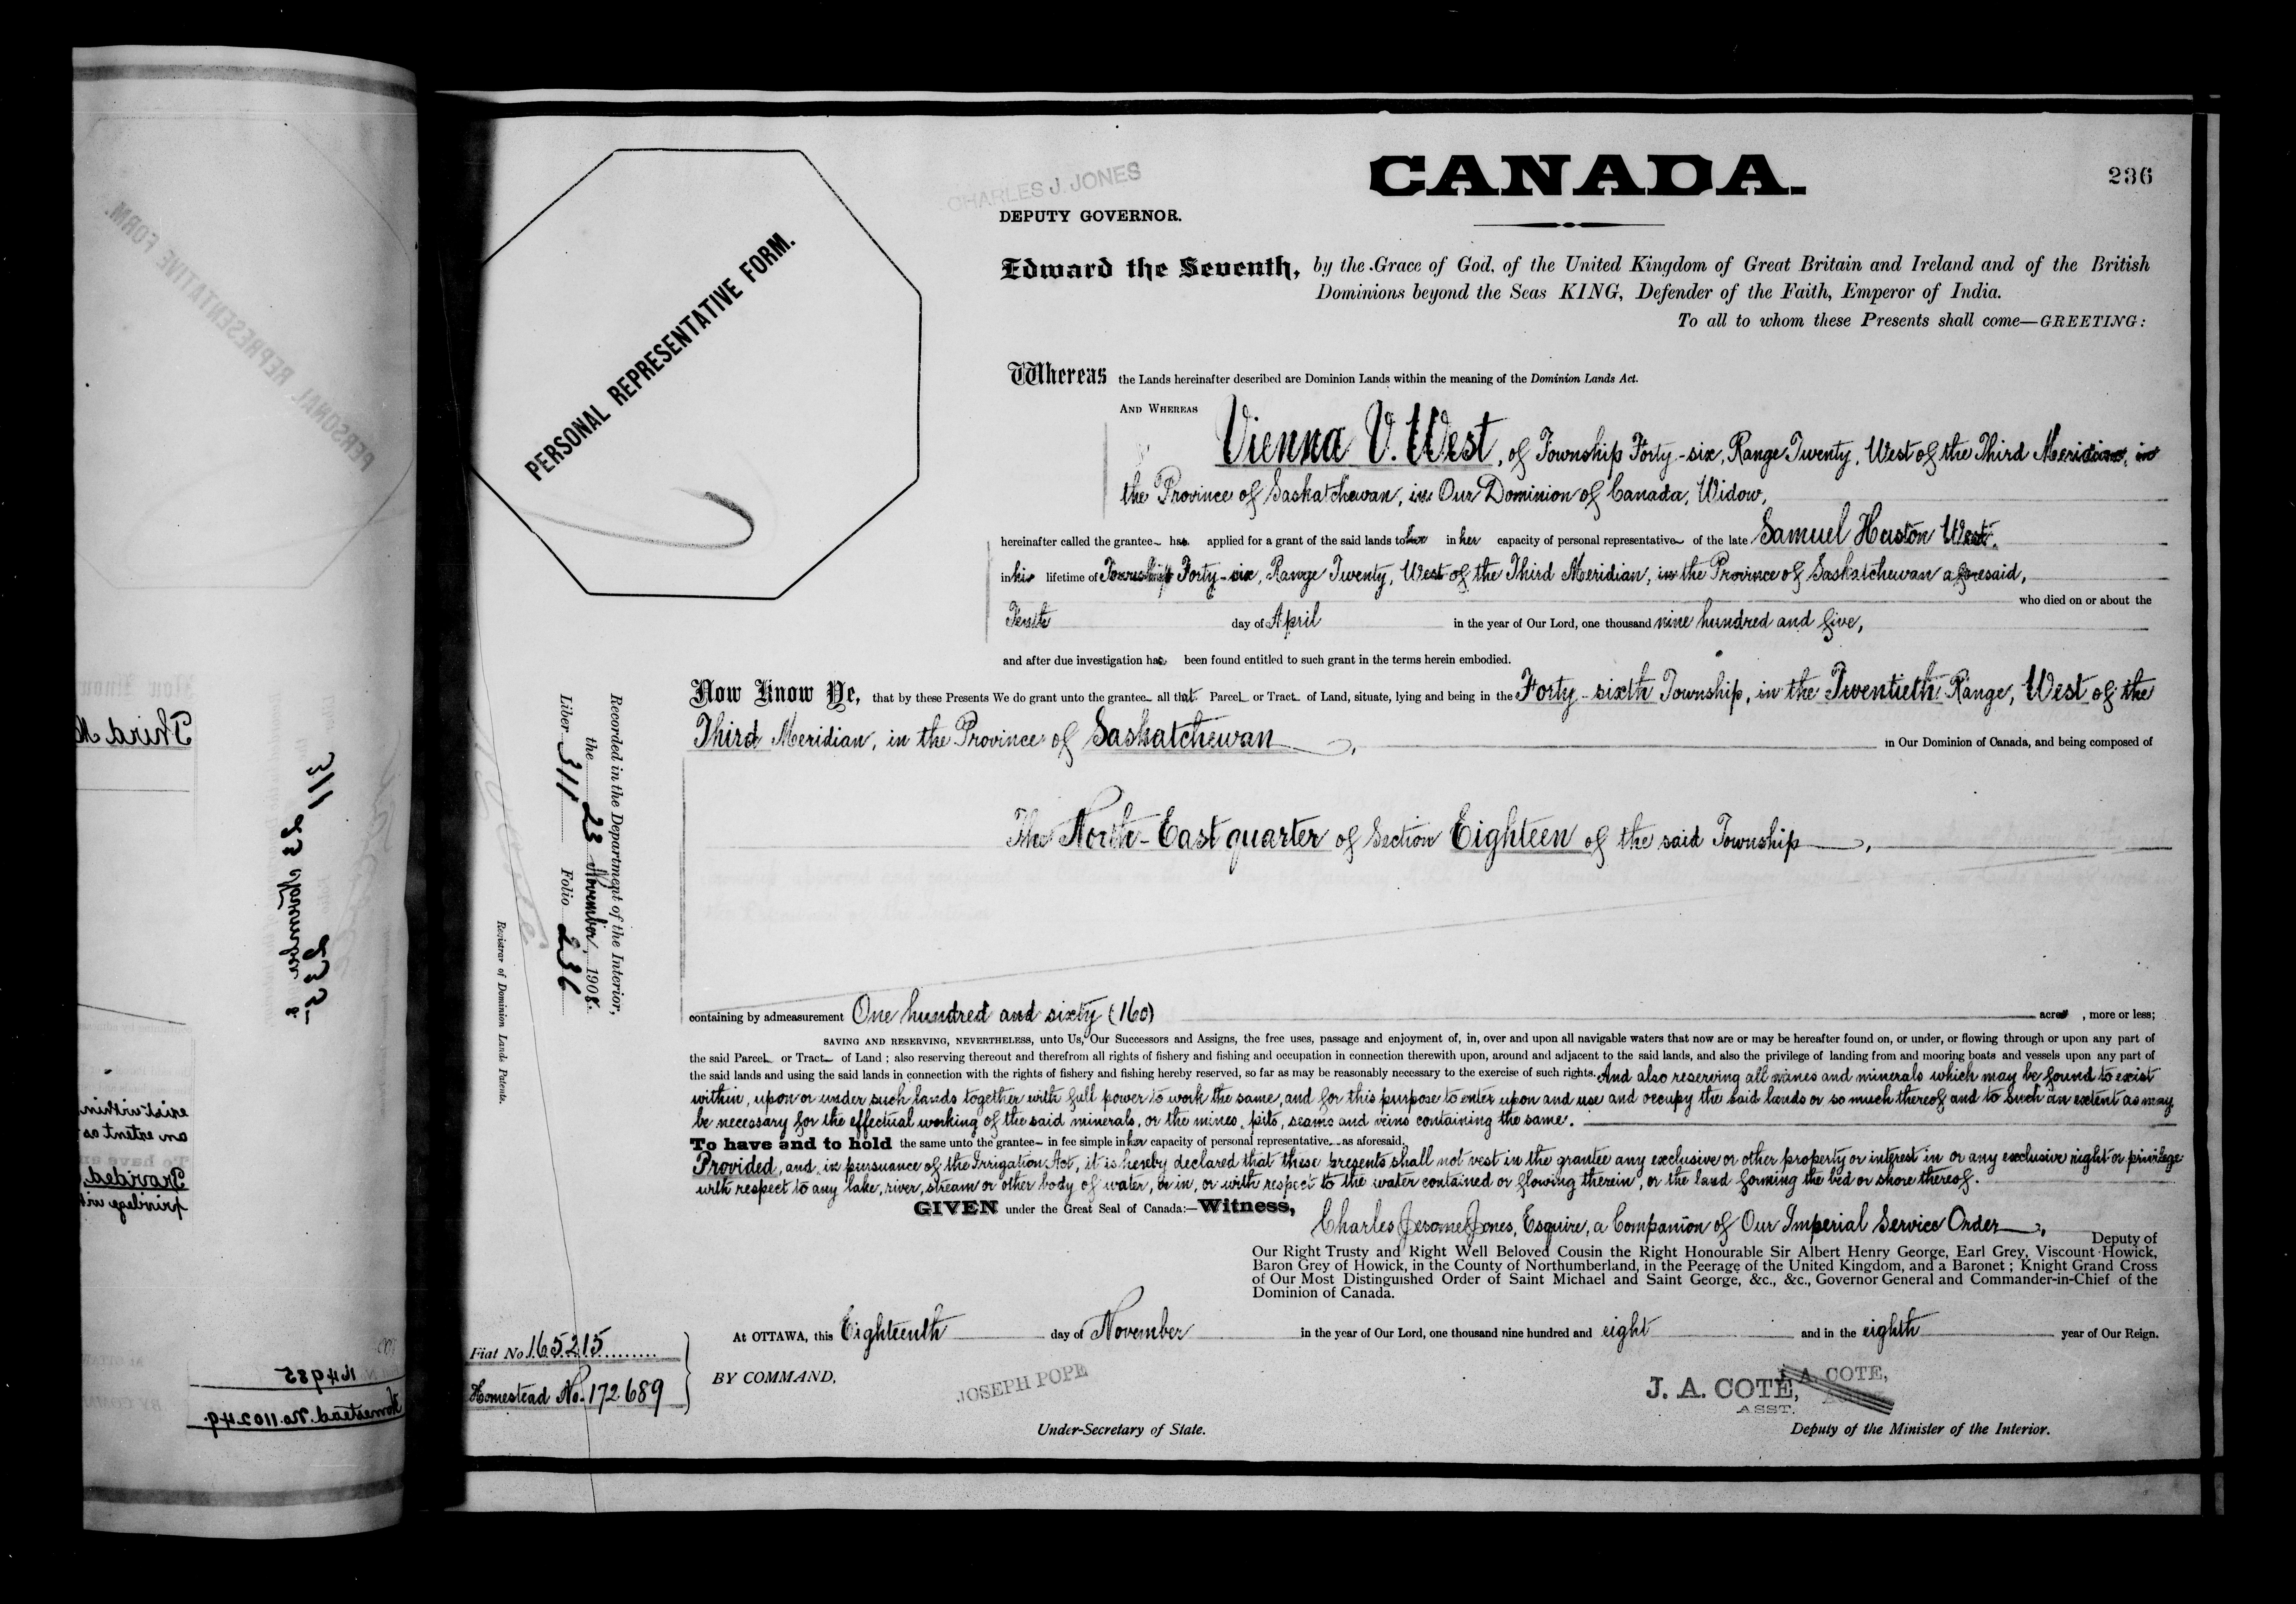 CANADA.
236
CHARLES J. JONES
DEPUTY GOVERNOR.
PERSONAL REPRESENTATIVE FORM.
Edward the Seventh, by the Grace of God, of the United Kingdom of Great Britain and Ireland and of the British
Dominions beyond the Seas KING, Defender of the Faith, Emperor of India.
To all to whom these Presents shall come—GREETING:
Whereas the Lands hereinafter described are Dominion Lands within the meaning of the Dominion Lands Act.
AND WHEREAS Vienna V. West, of Township Forty-six, Range Twenty, West of the Third Meridian, in
the Province of Saskatchewan, in Our Dominion of Canada, Widow,
hereinafter called the grantee has applied for a grant of the said lands to her in her capacity of personal representative of the late Samuel Huston West,
in his lifetime of Township Forty-six, Range Twenty, West of the Third Meridian, in the Province of Saskatchewan aforesaid,
who died on or about the
Tenth day of April in the year of Our Lord, one thousand nine hundred and five,
and after due investigation has been found entitled to such grant in the terms herein embodied.
Now Know Ye, that by these Presents We do grant unto the grantee all that Parcel or Tract of Land, situate, lying and being in the Forty-sixth Township, in the Twentieth Range, West of the
Third Meridian, in the Province of Saskatchewan, in Our Dominion of Canada, and being composed of
The North-East quarter of Section Eighteen of the said Township,
Recorded in the Department of the Interior,
the 23 November, 1908.
Liber 311 Folio 236
Registrar of Dominion Lands Patents.
containing by admeasurement One hundred and sixty (160) acres, more or less;
SAVING AND RESERVING, NEVERTHELESS, unto Us, Our Successors and Assigns, the free uses, passage and enjoyment of, in, over and upon all navigable waters that now are or may be hereafter found on, or under, or flowing through or upon any part of
the said Parcel or Tract of Land; also reserving thereout and therefrom all rights of fishery and fishing and occupation in connection therewith upon, around and adjacent to the said lands, and also the privilege of landing from and mooring boats and vessels upon any part of
the said lands and using the said lands in connection with the rights of fishery and fishing hereby reserved, so far as may be reasonably necessary to the exercise of such rights. And also reserving all mines and minerals which may be found to exist
within, upon or under such lands together with full power to work the same, and for this purpose to enter upon and use and occupy the said lands or so much thereof and to such an extent as may
be necessary for the effectual working of the said minerals, or the mines, pits, seams and veins containing the same.
To have and to hold the same unto the grantee in fee simple in her capacity of personal representative as aforesaid.
Provided, and in pursuance of the Irrigation Act, it is hereby declared that these presents shall not vest in the grantee any exclusive or other property or interest in or any exclusive right or privilege
with respect to any lake, river, stream or other body of water, or in, or with respect to the water contained or flowing therein, or the land forming the bed or shore thereof.
GIVEN under the Great Seal of Canada:—Witness, Charles Jerome Jones, Esquire, a Companion of Our Imperial Service Order,
Deputy of
Our Right Trusty and Right Well Beloved Cousin the Right Honourable Sir Albert Henry George, Earl Grey, Viscount Howick,
Baron Grey of Howick, in the County of Northumberland, in the Peerage of the United Kingdom, and a Baronet; Knight Grand Cross
of Our Most Distinguished Order of Saint Michael and Saint George, &c., &c., Governor General and Commander-in-Chief of the
Dominion of Canada.
At OTTAWA, this Eighteenth day of November in the year of Our Lord, one thousand nine hundred and eight and in the eighth year of Our Reign.
Fiat No. 165215
Homestead No. 172689
BY COMMAND,
JOSEPH POPE
Under-Secretary of State.
J. A. COTE,
ASST.
A. COTE,
Deputy of the Minister of the Interior.
PERSONAL REPRESENTATIVE FORM.
Third M
311
23 November
235
exist within
an extent as
To have an
Provided,
privilege wit
164985
Homestead No. 110249.